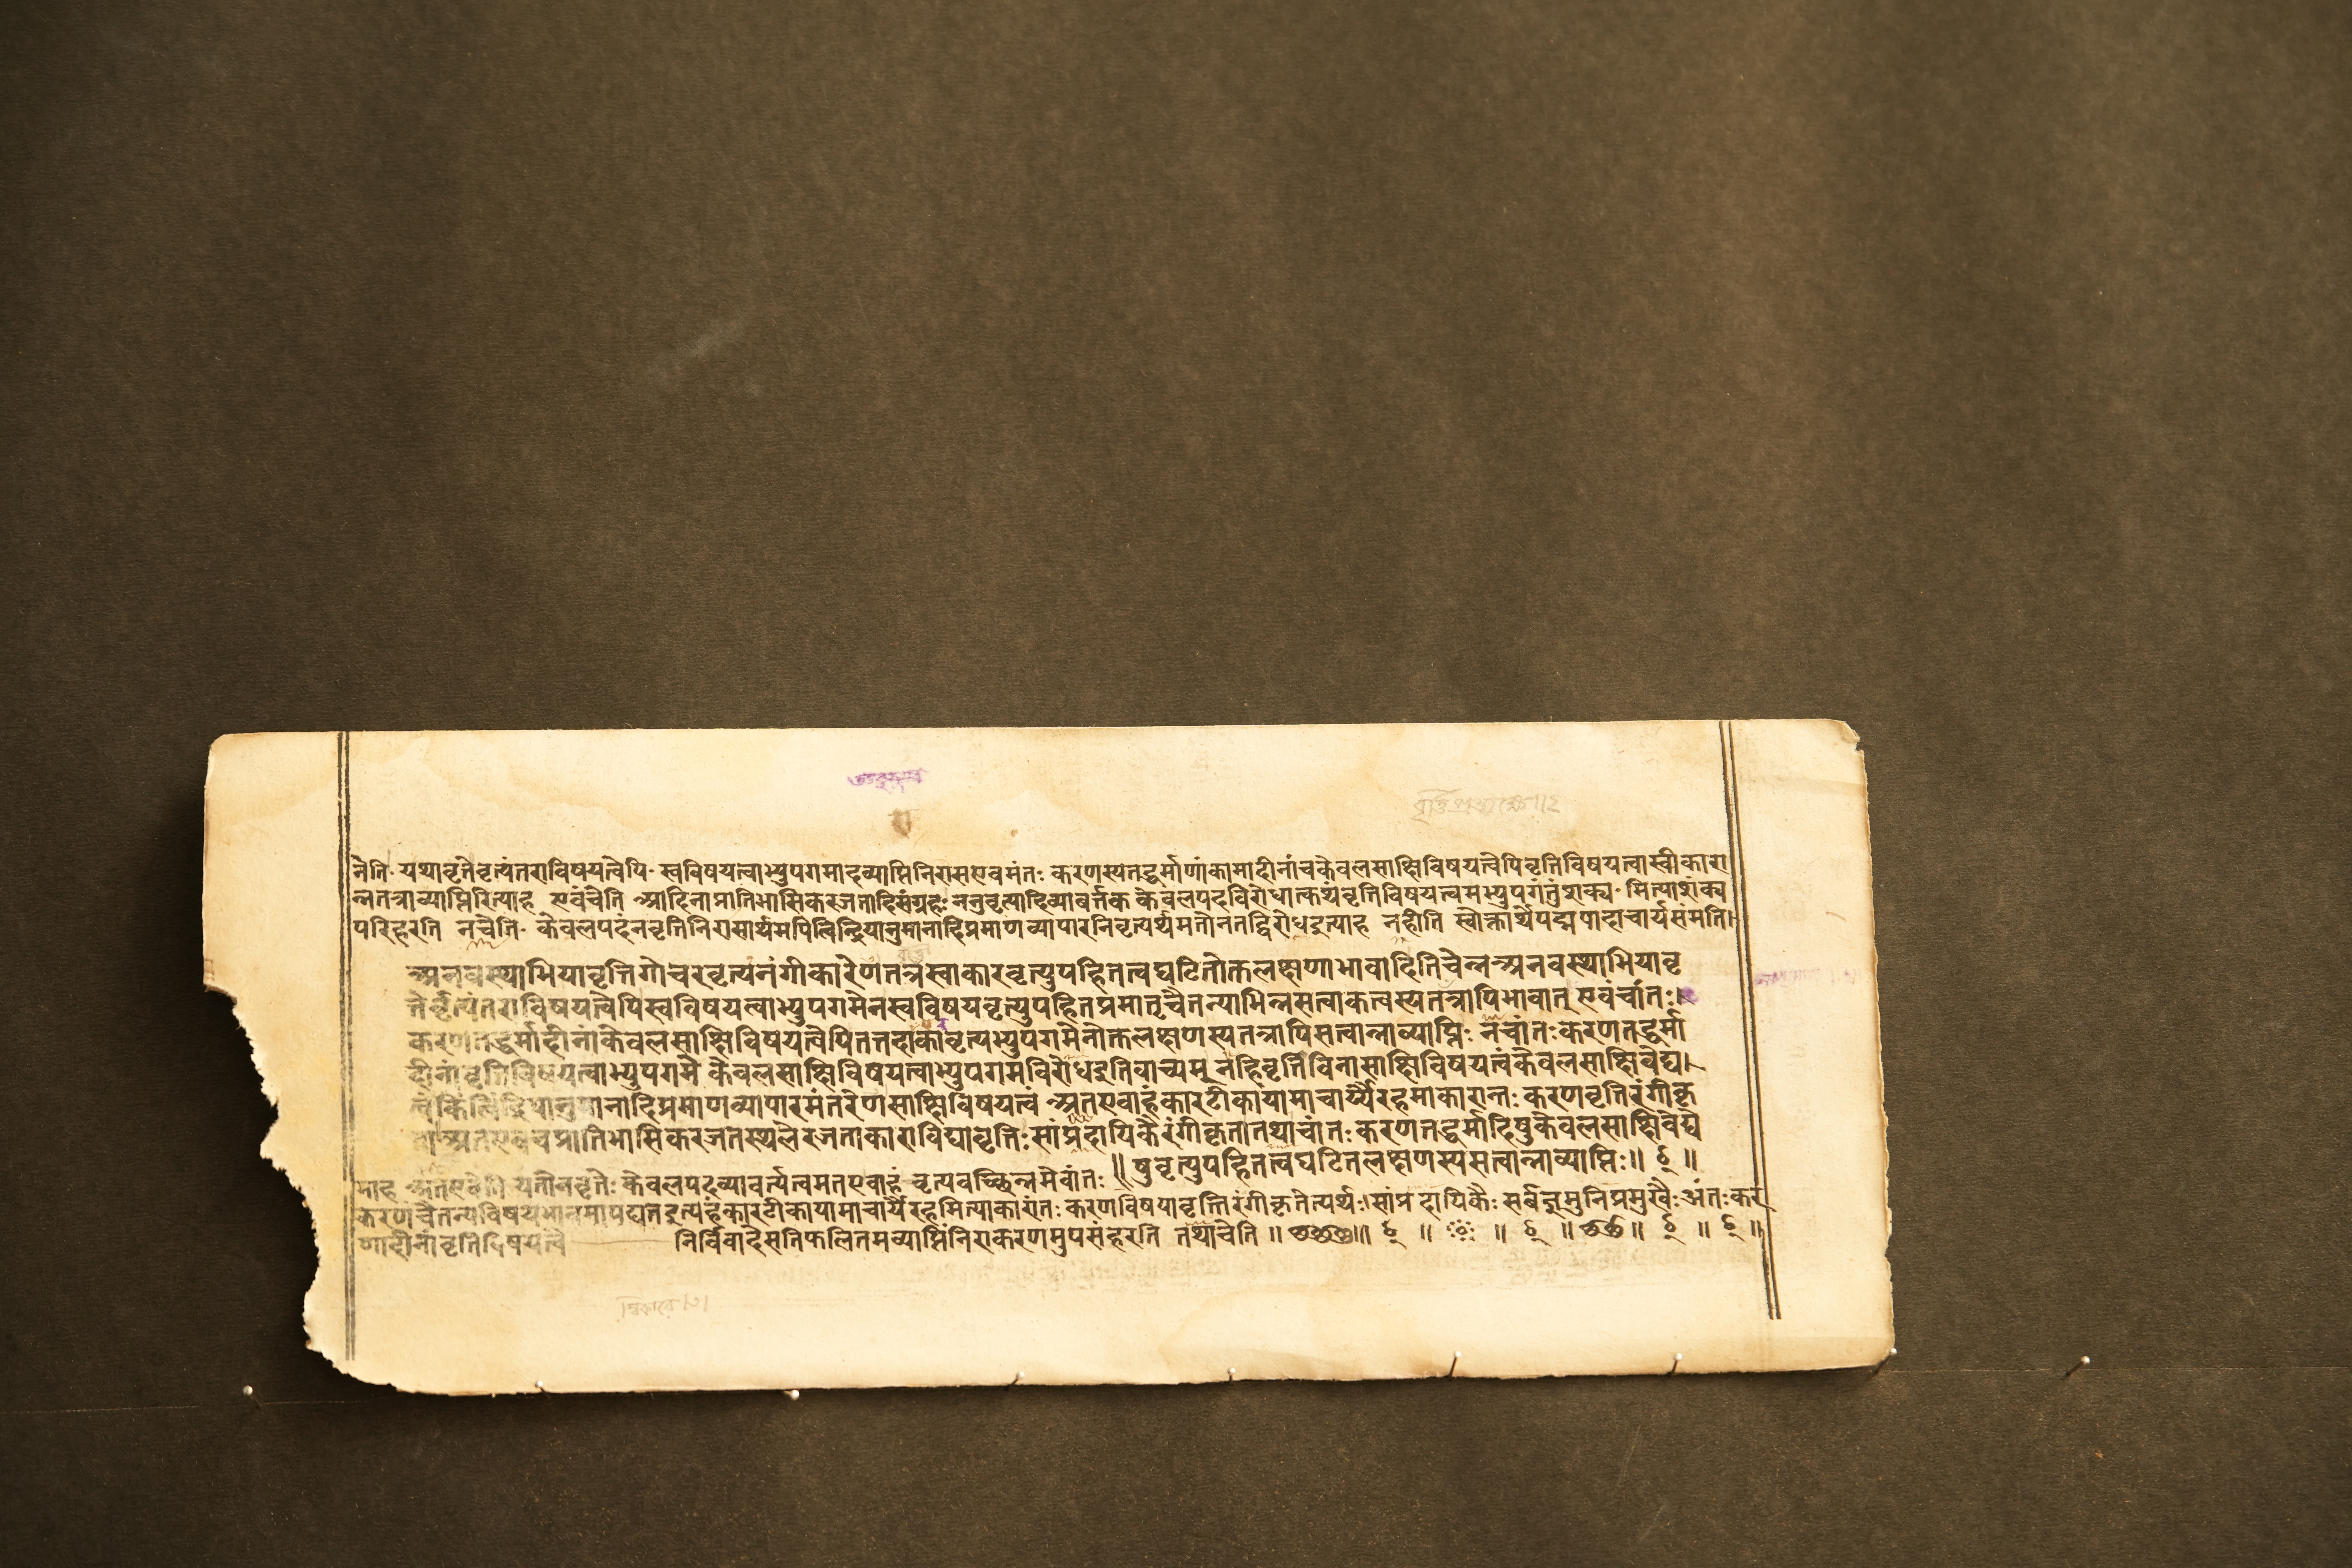 नेति यथावृत्तेर्वृत्यंतराविषयत्वेपि स्वविषयत्वाभ्युपगमादव्याप्तिनिराससएवमंतः करणस्यतद्धर्माणांकामादीनांचकेवलसाक्षिविषयत्वेपिवृत्तिविषयत्वास्वीकारा
न्नतत्राव्याप्तिरित्याह एवंचेति आदिनाप्रातिभासिकरजतादिसंग्रहः ननुवृत्यादिव्यावर्त्तक केवलपदविरोधात्कथंवृत्तिविषयत्वमभ्युपगंतुंशक्य मित्याशंक्य
परिहरति नचेति केवलपदंनवृत्तिनिरासार्थमपित्विन्द्रियानुमानादिप्रमाणव्यापारनिवृत्यर्थमतोनतद्विरोधइत्याह नहीति स्वोक्तार्थेपद्मपादाचार्यसंमति
अनवस्थाभियावृत्तिगोचरवृत्यनंगीकारेणतत्रस्वाकारवृत्युपहितत्वघटितोक्तलक्षणाभावादितिचेन्नअनवस्थाभियावृ
त्तेर्वृत्यंतराविषयत्वेपिस्वविषयत्वाभ्युपगमेनस्वविषयवृत्युपहितप्रमातृचैतन्याभिन्नसत्वाकत्वस्यतत्रापिभावात् एवंचांतः।
करणतद्धर्मादीनांकेवलसाक्षिविषयत्वेपितत्तदाकावृत्यभ्युपगमेनोक्तलक्षणस्यतत्रापिसत्वान्नाव्याप्तिः नचांतःकरणतद्धर्मा
दीनांवृत्तिविषयत्वाभ्युपगमे केवलसाक्षिविषयत्वाभ्युपगमविरोधइतिवाच्यम् नहिवृत्तिंविनासाक्षिविषयत्वंकेवलसाक्षिवेद्य।
त्वंकिंत्विंद्रियानुमानादिप्रमाणव्यापारमंतरेणसाक्षिविषयत्वं अतएवाहंकारटीकायामाचार्य्यैरहमाकारान्तः करणवृत्तिरंगीकृ
ता अतएवचप्रातिभासिकरजतस्थलेरजताकाराविद्यावृत्तिः सांप्रदायिकैरंगीकृतातथाचांतः करणतद्धर्मादिषुकेवलसाक्षिवेद्ये
॥ षुवृत्युपहितत्वघटितलक्षणस्यसत्वान्नाव्याप्तिः॥ ॥
माह अतएवेति यतोनवृत्तेः केवलपदव्यावर्त्यत्वमतएवाहं वृत्यवच्छिन्नमेवांतः
करणचैतन्यविषयभावमापद्यतइत्यहंकारटीकायामाचार्यैरहमित्याकारांतः करणविषयावृत्तिरंगीकृतेत्यर्थः।सांप्रदायिकैः सर्वज्ञमुनिप्रमुखैः अंतःकर
णादीनांवृत्तिविषयत्वे निर्विवादेसतिफलितमव्याप्तिंनिराकरणमुपसंहरति तथाचेति ॥